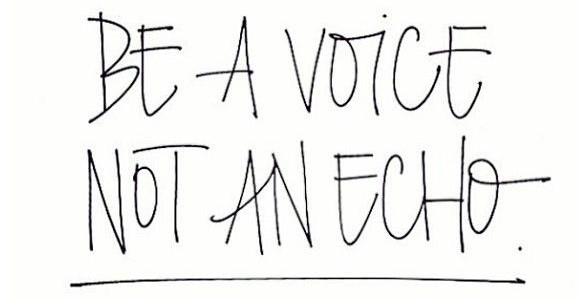 BE A VOiCE
NOT AN ECHO.